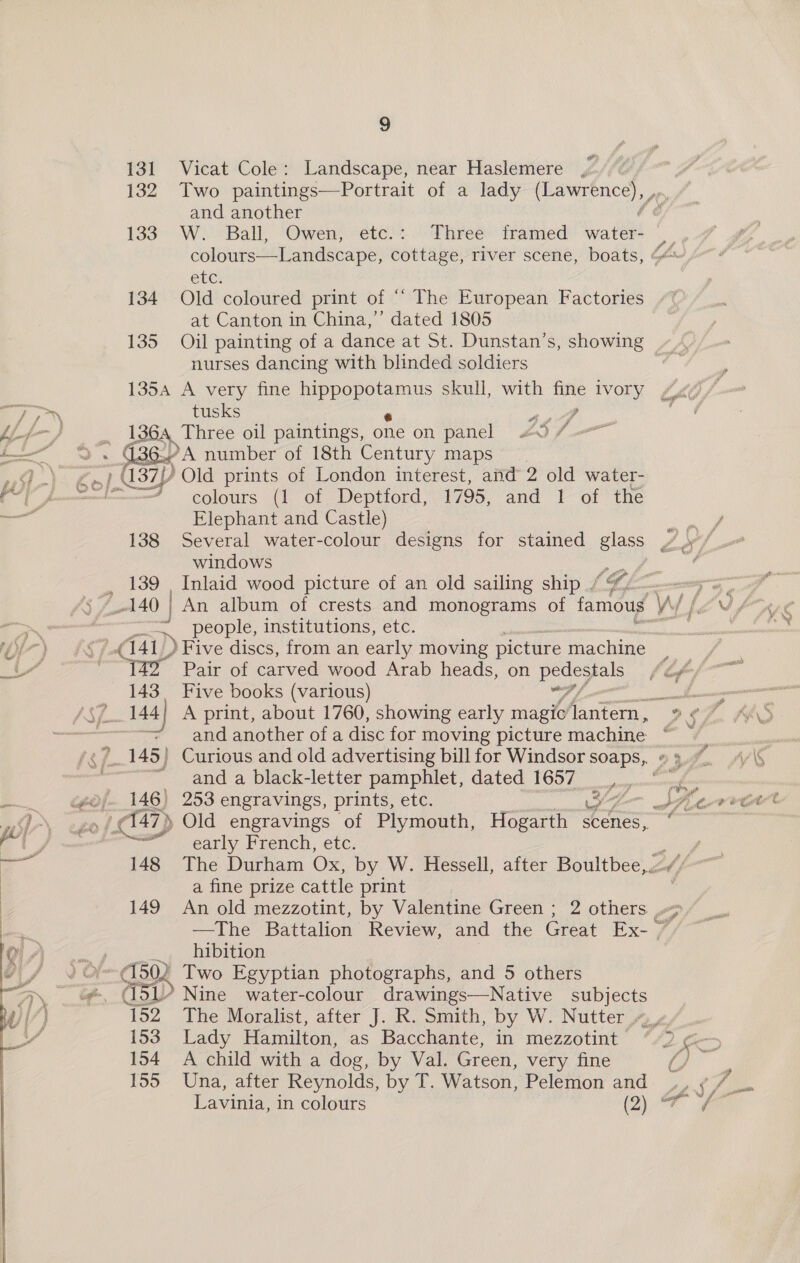 9
131 Vicat Cole: Landscape, near Haslemere
132 Two paintings—Portrait of a lady (Lawrence),
and another
133 W. Ball, Owen, etc.: Three framed water-
colours—Landscape, cottage, river scene, boats,
etc.
134 Old coloured print of “ The European Factories
at Canton in China,” dated 1805
135 Oil painting of a dance at St. Dunstan’s, showing
nurses dancing with blinded soldiers
135A A very fine hippopotamus skull, with fine ivory
tusks
136A Three oil paintings, one on panel
136 A number of 18th Century maps
137 Old prints of London interest, and 2 old water-
colours (1 of Deptford, 1795, and 1 of the
Elephant and Castle)
138 Several water-colour designs for stained glass
windows
139 Inlaid wood picture of an old sailing ship
140 An album of crests and monograms of famous
people, institutions, etc.
141 Five discs, from an early moving picture machine
142 Pair of carved wood Arab heads, on pedestals
143 Five books (various)
144 A print, about 1760, showing early magic lantern,
and another of a disc for moving picture machine
145 Curious and old advertising bill for Windsor soaps,
and a black-letter pamphlet, dated 1657
146 253 engravings, prints, etc.
147 Old engravings of Plymouth, Hogarth scenes,
early French, etc.
148 The Durham Ox, by W. Hessell, after Boultbee,
a fine prize cattle print
149 An old mezzotint, by Valentine Green ; 2 others
—The Battalion Review, and the Great Ex-
hibition
150 Two Egyptian photographs, and 5 others
151 Nine water-colour drawings—Native subjects
152 The Moralist, after J. R. Smith, by W. Nutter
153 Lady Hamilton, as Bacchante, in mezzotint
154 A child with a dog, by Val. Green, very fine
155 Una, after Reynolds, by T. Watson, Pelemon and
Lavinia, in colours (2)